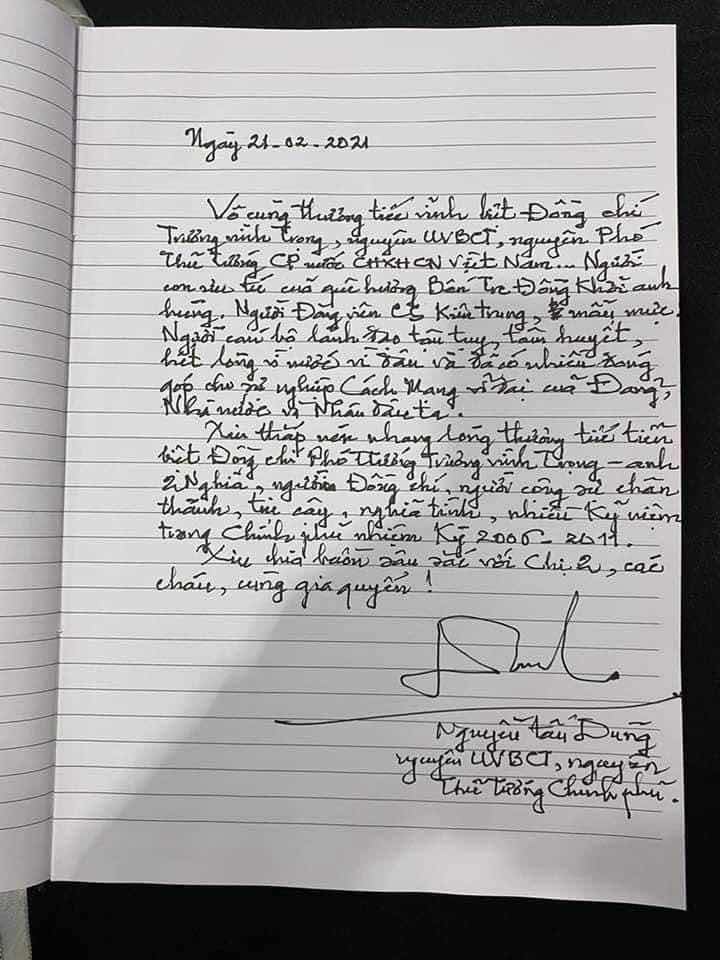 Ngày 21-02-2021
Vô cùng thương tiếc vĩnh biệt Đồng chí
Trương Vĩnh Trọng, nguyên UVBCT, nguyên Phó
Thủ tướng CP nước CHXHCN Việt Nam... Người
con ưu tú của quê hương Bến Tre Đồng Khởi anh
hùng. Người Đảng viên CS Kiên trung, mẫu mực.
Người cán bộ lãnh đạo tận tụy, tâm huyết,
hết lòng vì nước vì dân và đã có nhiều đóng
góp cho sự nghiệp Cách Mạng vĩ đại của Đảng,
Nhà nước và Nhân dân ta.
Xin thắp nén nhang lòng thương tiếc tiễn
biệt Đồng chí Phó Thủ tướng Trương Vĩnh Trọng - anh
2 Nghĩa, người Đồng chí, người cộng sự chân
thành, tin cậy, nghĩa tình, nhiều Kỷ niệm
trong Chính phủ nhiệm Kỳ 2006-2011.
Xin chia buồn sâu sắc với Chị 2, các
cháu, cùng gia quyến!
Nguyễn Tấn Dũng
nguyên UVBCT, nguyên
Thủ tướng Chính phủ.